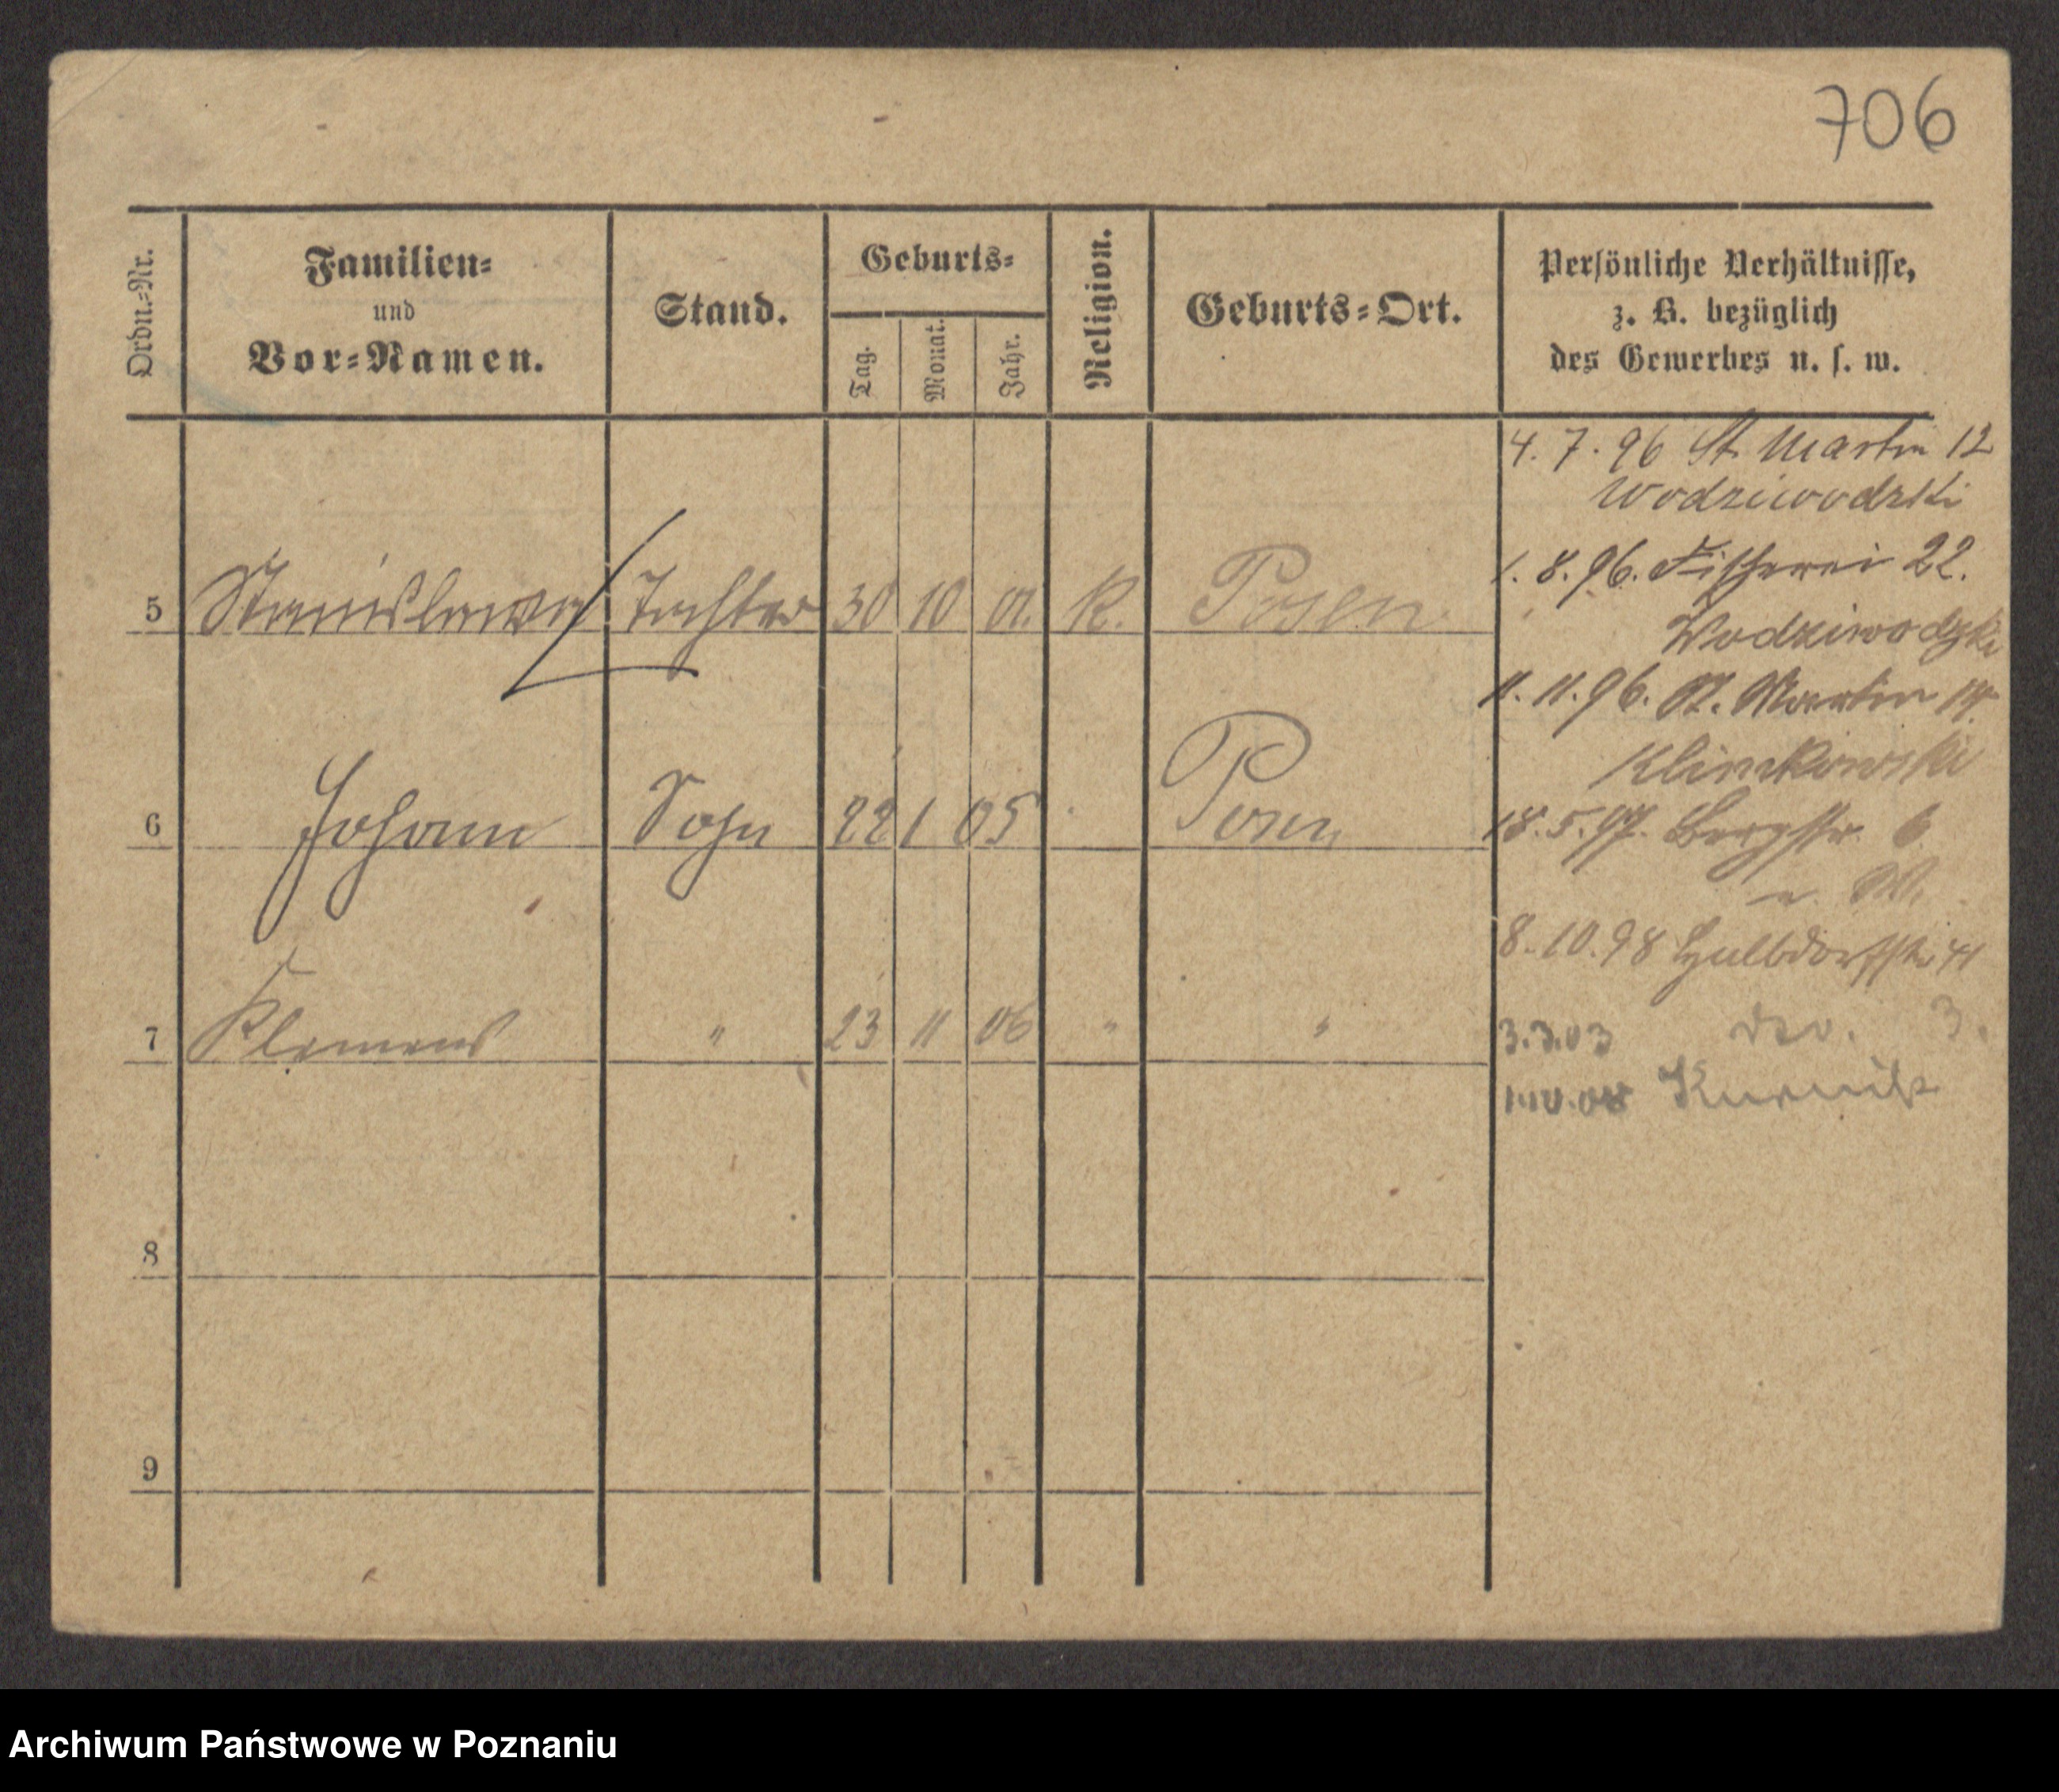 706
Ordn.-Nr.
Familien-
und
Vor-Namen.
Stand.
Geburts-
Tag.
Monat.
Jahr.
Religion.
Geburts-Ort.
Persönliche Verhältnisse,
z. B. bezüglich
des Gewerbes u. s. w.
4. 7. 96 St. Martin 12
Wodziwodzki
5 Stanislawa Tochter 30 10 01. K. Posen
1. 8. 96. Fischerei 22.
Wodziwodzki
11. 11. 96. St. Martin
6 Johann Sohn 22 1 05 Posen
18. 5. 97. Bergstr. 6
8. 10. 98
7 Klemens " 23 11 06 " "
3.3.03 3.
Kurnik
8
9
Archiwum Państwowe w Poznaniu